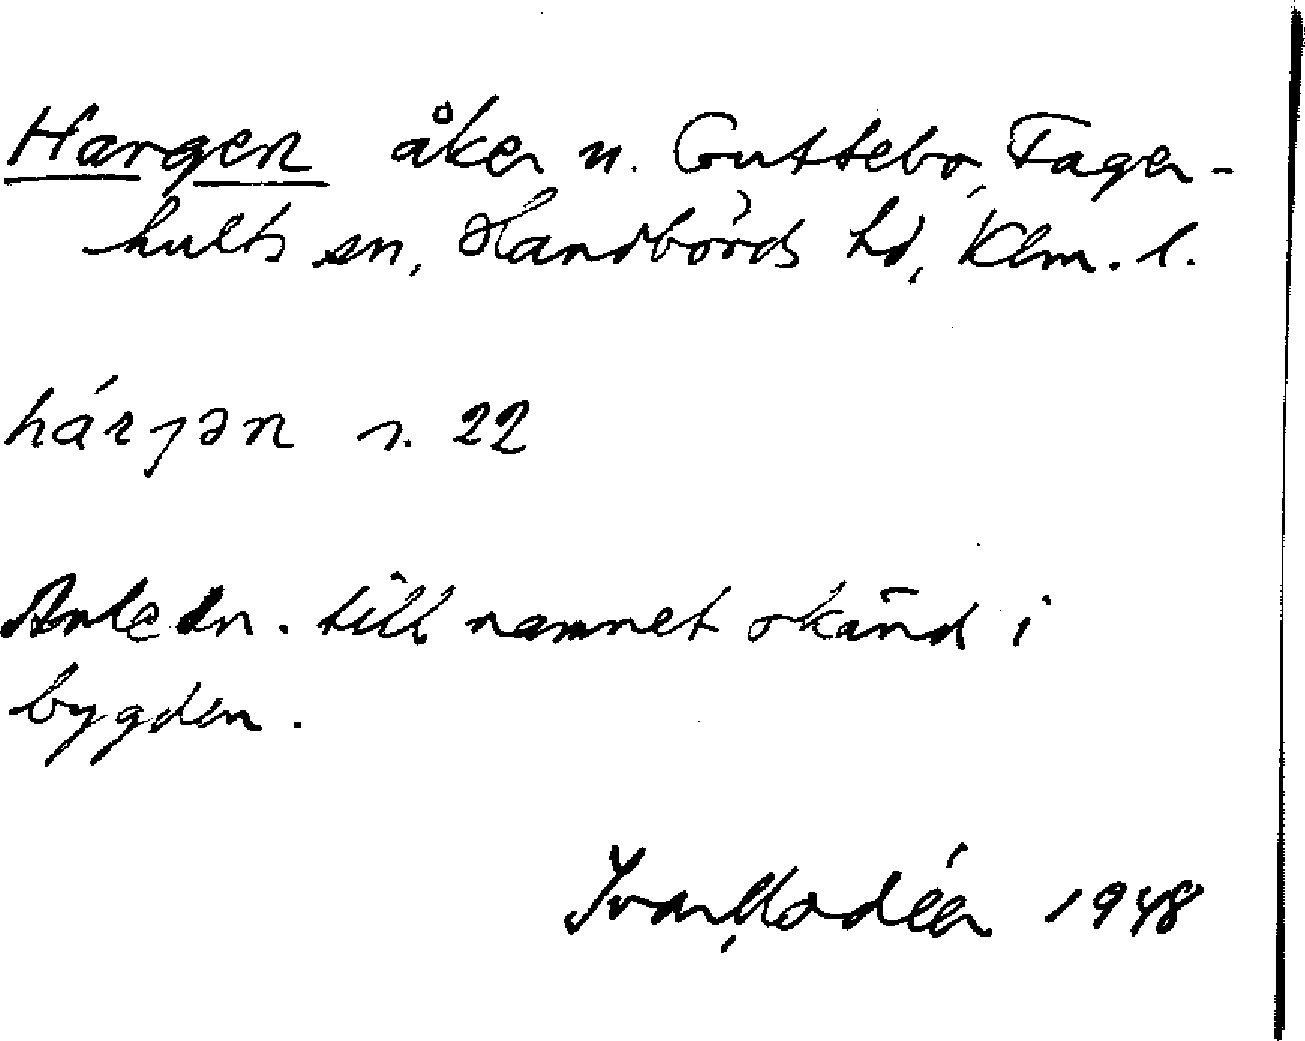 Hargen åker n. Guttebo, Fager-
hults sn, Handbörds hd, Klm. l.
hárɟən s. 22
Anledn. till namnet okänd i
bygden.
Ivar Modéer 1948